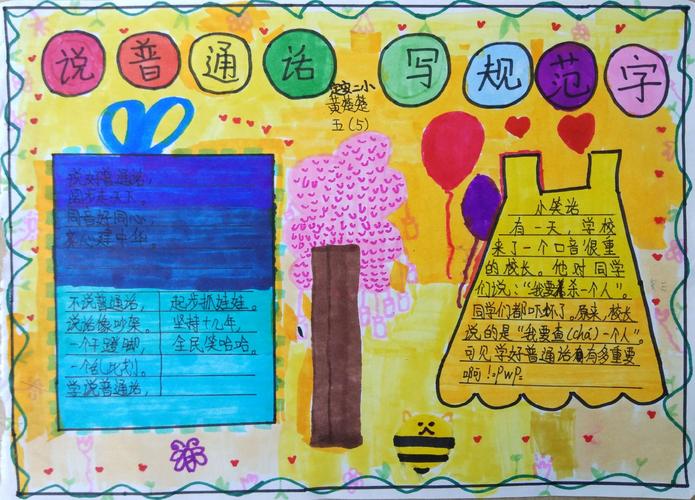 说普通话 写规范字
定安二小
黄楚楚
五(5)
说好普通话,
同音好同心,
爱心建中华。
不说普通话,
说话像吵架。
一个干蹬脚,
一个乱比划。
学说普通话,
起步抓娃娃。
坚持十几年,
全民笑哈哈。
小笑话
有一天,学校
来了一个口音很重
的校长。他对同学
们说:“我要杀一个人”。
同学们都吓坏了,原来,校长
说的是“我要查(chá)一个人”。
可见,学好普通话有多重要
啊!PwP。